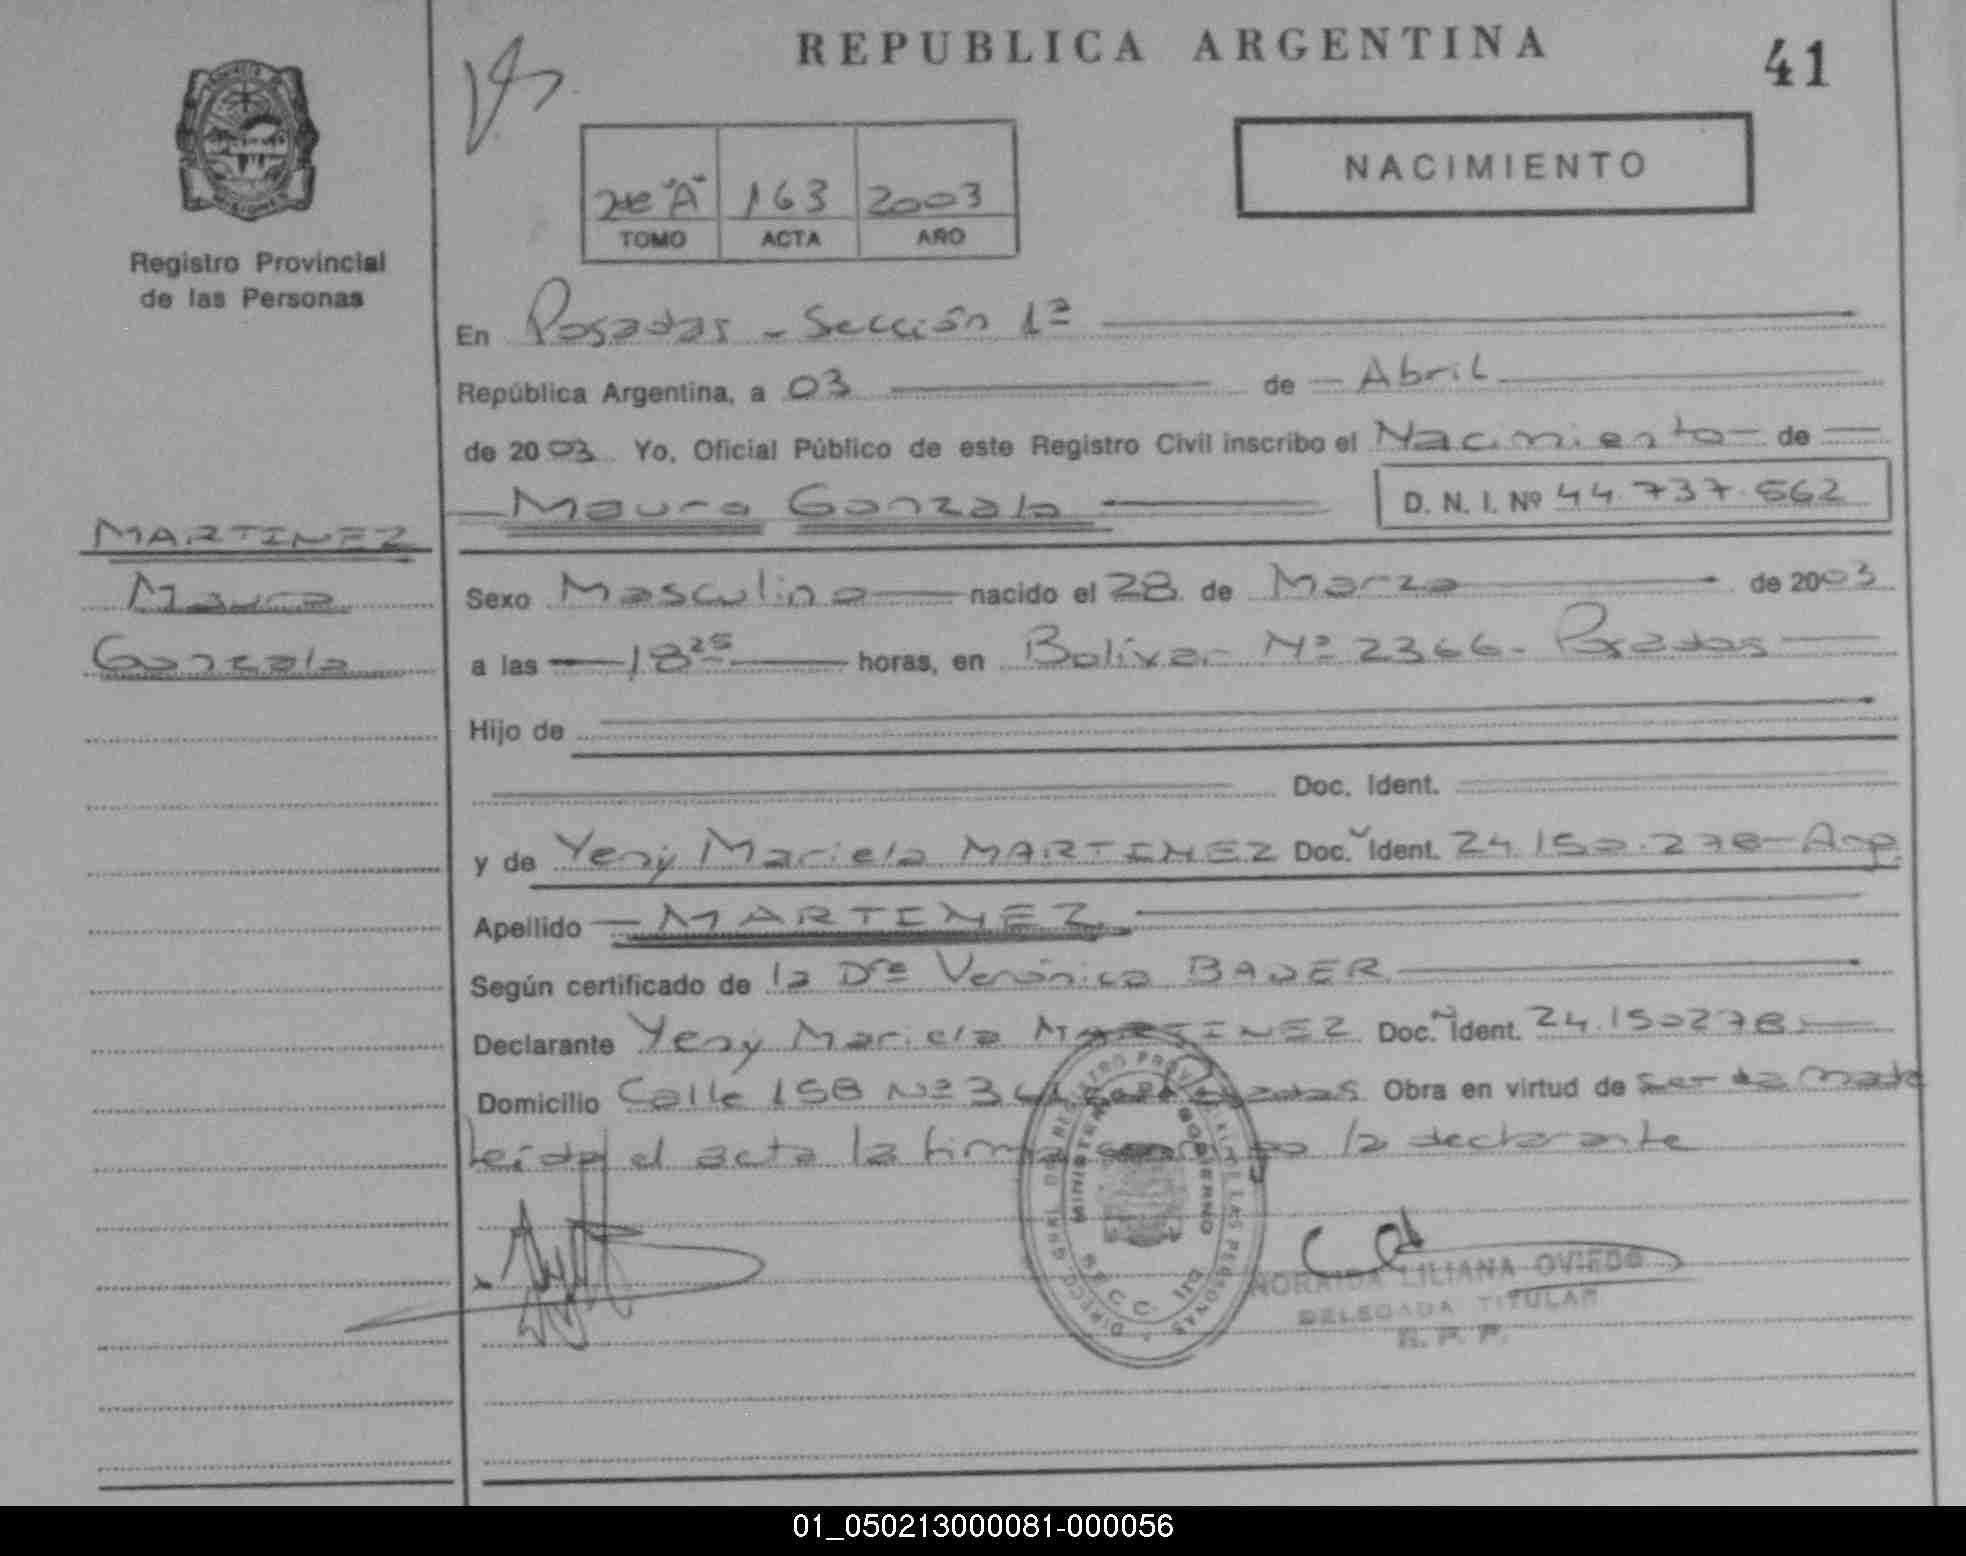 REPUBLICA ARGENTINA
41
NACIMIENTO
"A" 163 2003
TOMO ACTA AÑO
Registro Provincial
de las Personas
En Posadas - Sección 1ª
República Argentina, a 03 de Abril
de 2003 Yo, Oficial Público de este Registro Civil inscribo el Nacimiento de
Mauro Gonzalo
D. N. I. Nº 44.737.562
MARTINEZ
Mauro
Gonzalo
Sexo Masculino nacido el 28 de Marzo de 2003
a las 18 25 horas, en Bolívar Nº 2366 - Posadas
Hijo de
Doc. Ident.
y de Yeny Mariela MARTINEZ Doc. Ident. 24.150.278 - Arg.
Apellido MARTINEZ
Según certificado de la Dra Verónica BAUER
Declarante Yeny Mariela MARTINEZ Doc. Ident. 24.150278
Domicilio Calle 158 Nº Posadas Obra en virtud de ser la madre
Leída el acta la firma conmigo la declarante
MINISTERIO GOBIERNO
LILIANA OVIEDO
DELEGADA TITULAR
R. P. P.
01_050213000081-000056